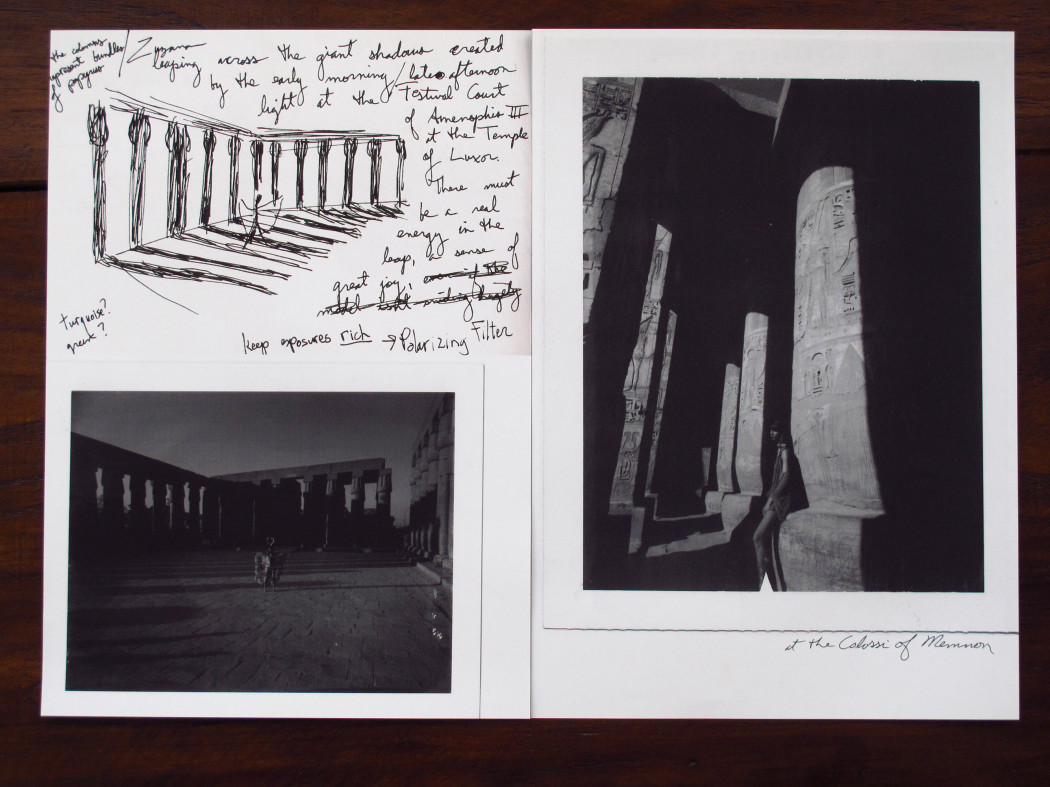 the columns
represent bundles
of papyrus
Zuzana
leaping across the giant shadows created
by the early morning/late afternoon
light at the Festival Court
of Amenophis III
at the Temple
of Luxor.
There must
be a real
energy in the
leap, a sense of
great joy,
turquoise?
greek?
keep exposures rich → Polarizing Filter
at the Colossi of Memnon